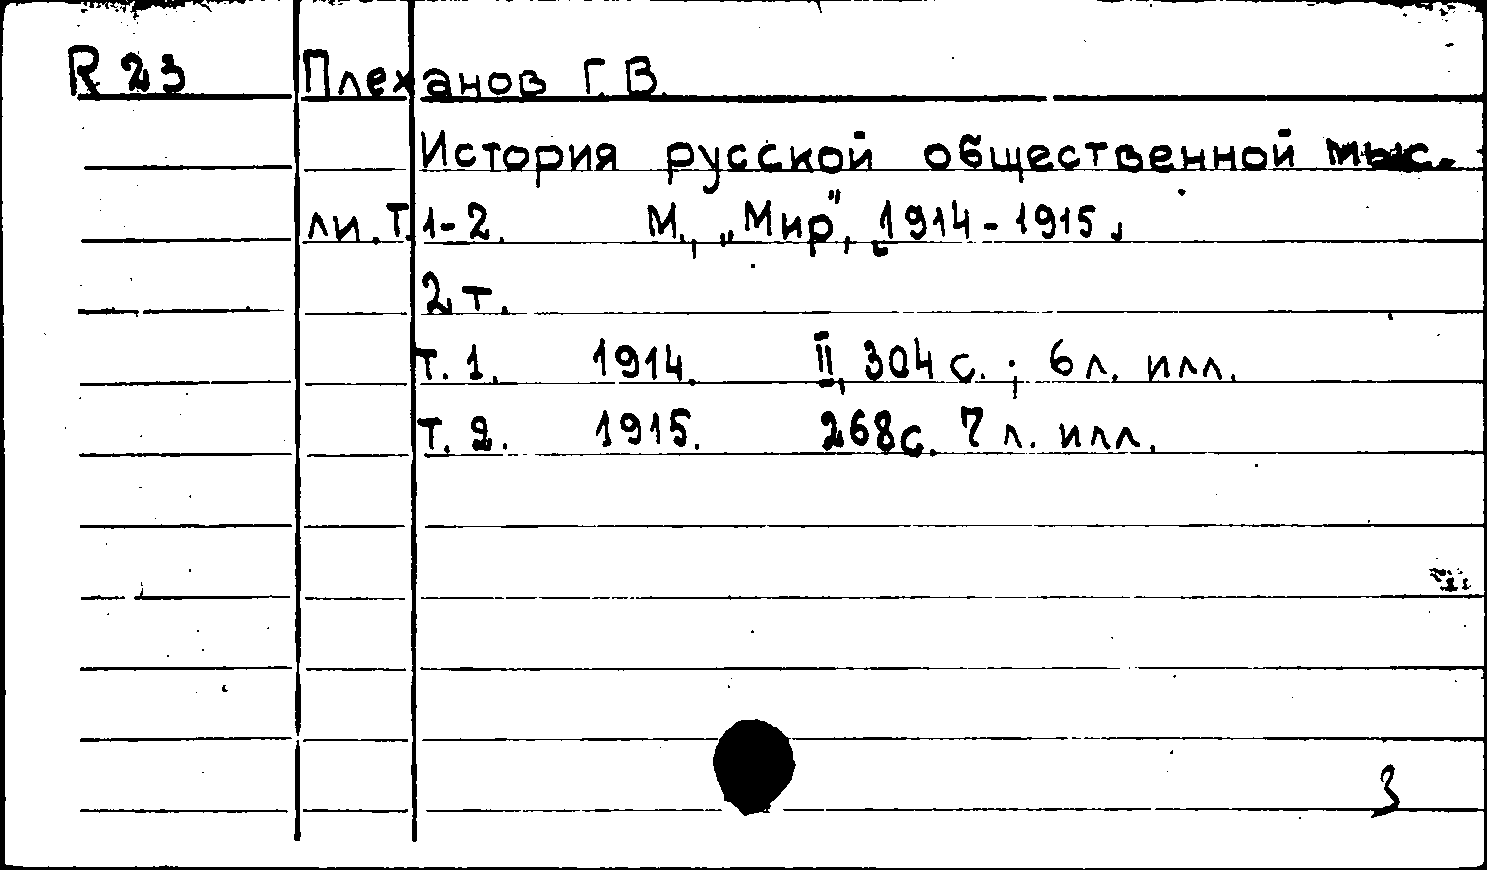 R 23 Плеханов Г. В.
История русской общественной мыс-
ли. Т. 1-2. М., „Мир", 1914-1915.
2 т.
Т. 1. 1914. II, 304 с.; 6 л. илл.
Т. 2. 1915. 268 с. 7 л. илл.
3